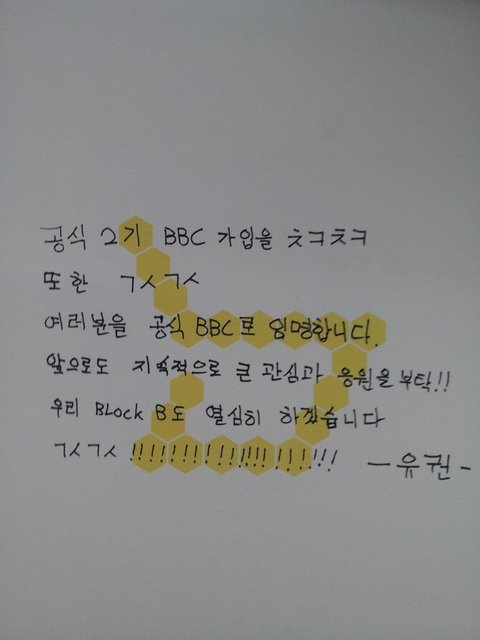 공식 2기 BBC 가입을 ㅊㅋㅊㅋ
또한 ㄱㅅㄱㅅ
여러분을 공식 BBC로 임명합니다.
앞으로도 지속적으로 큰 관심과 응원을 부탁!!
우리 BLOCK B도 열심히 하겠습니다
ㄱㅅㄱㅅ !!!!!!!!!!!!!!!!!! -유권-